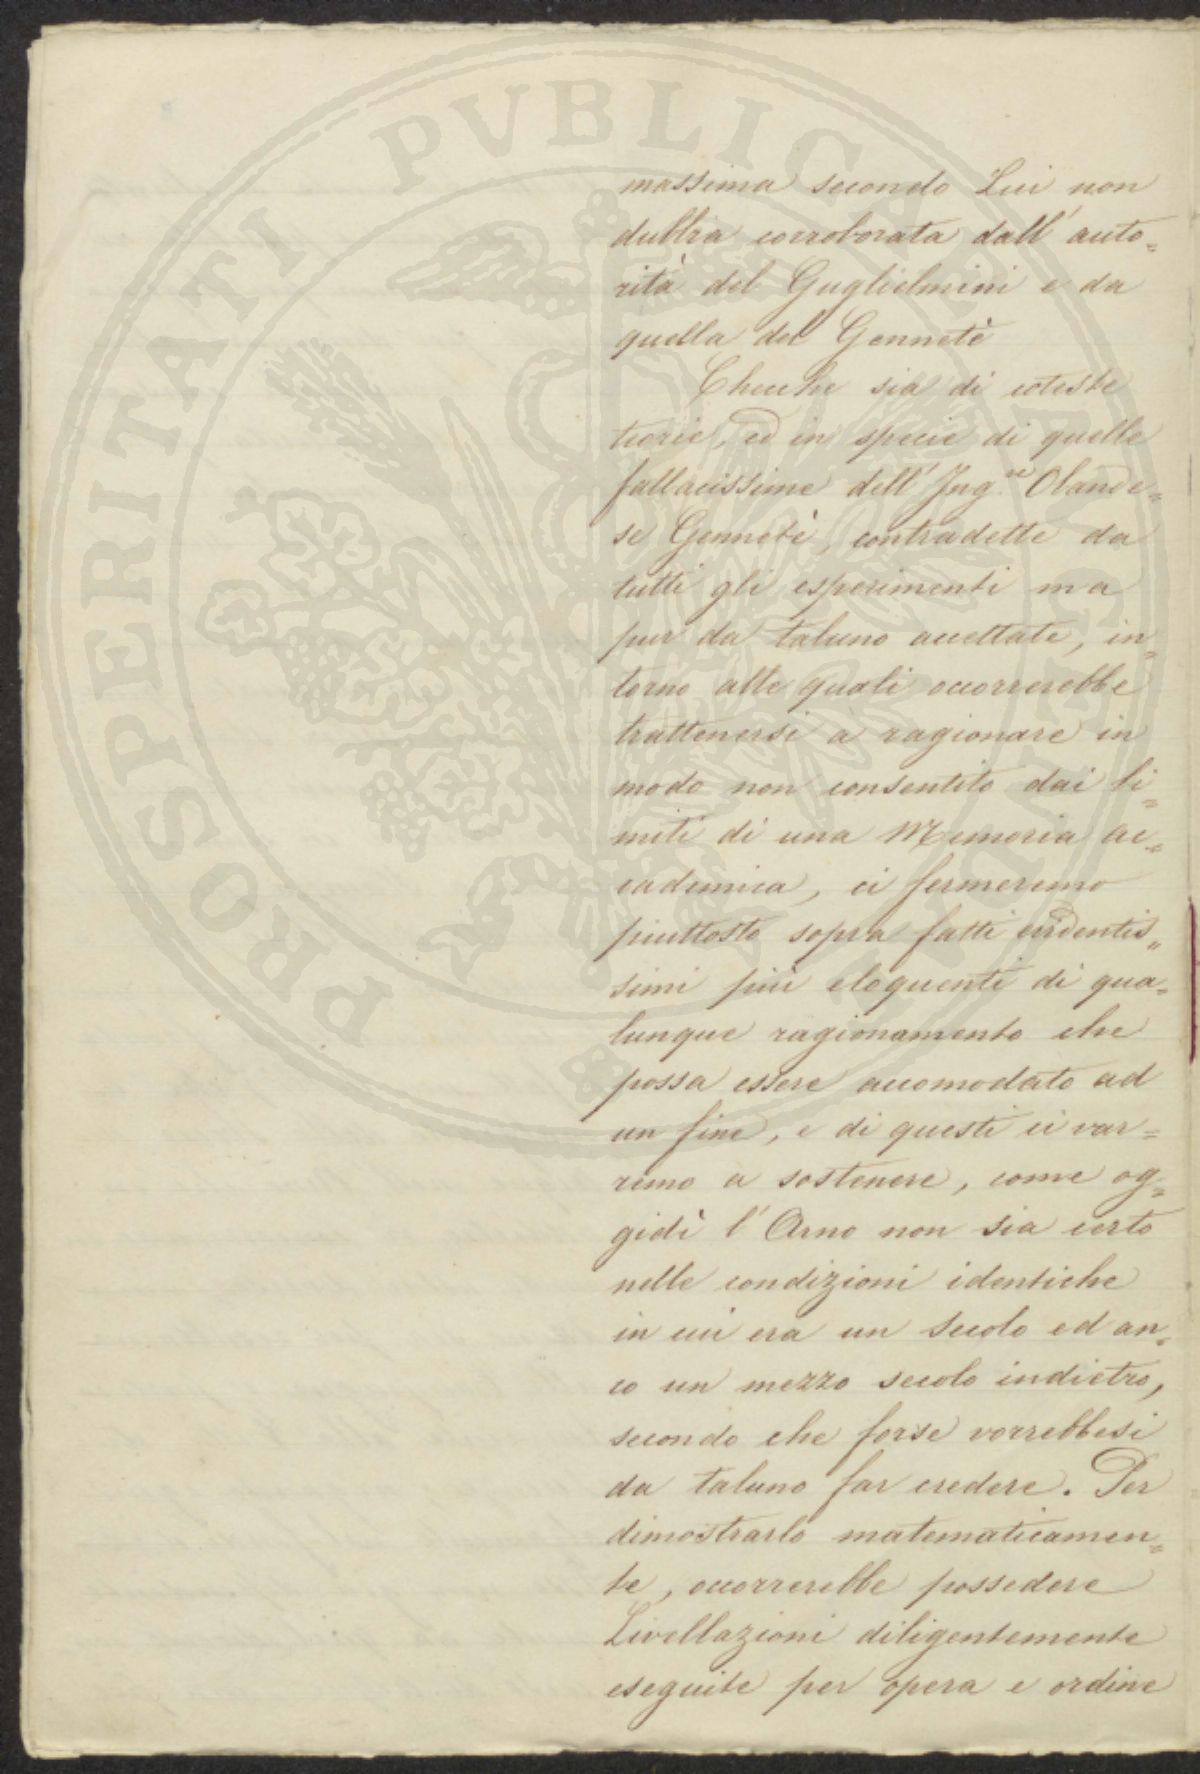 PROSPERITATI PVBLICAE AVGENDAE
massima secondo Lui non
dubbia corroborata dall'auto=
rità del Guglielmini e da
quella del Gennetè
Checche sia di coteste
teorie, ed in specie di quelle
fallacissime dell'Ing.re Olande=
se Gennetè, contradette da
tutti gli esperimenti ma
pur da taluno accettate, in=
torno alle quali occorrerebbe
trattenersi a ragionare in
modo non consentito dai li=
miti di una Memoria ac=
cademica, ci fermeremo
piuttosto sopra fatti evidentis=
simi più eloquenti di qua=
lunque ragionamento che
possa essere accomodato ad
un fine, e di questi ci var=
remo a sostenere, come og=
gidì l'Arno non sia certo
nelle condizioni identiche
in cui era un secolo ed an=
co un mezzo secolo indietro,
secondo che forse vorrebbesi
da taluno far credere. Per
dimostrarlo matematicamen=
te, occorrerebbe possedere
Livellazioni diligentemente
eseguite per opera e ordine